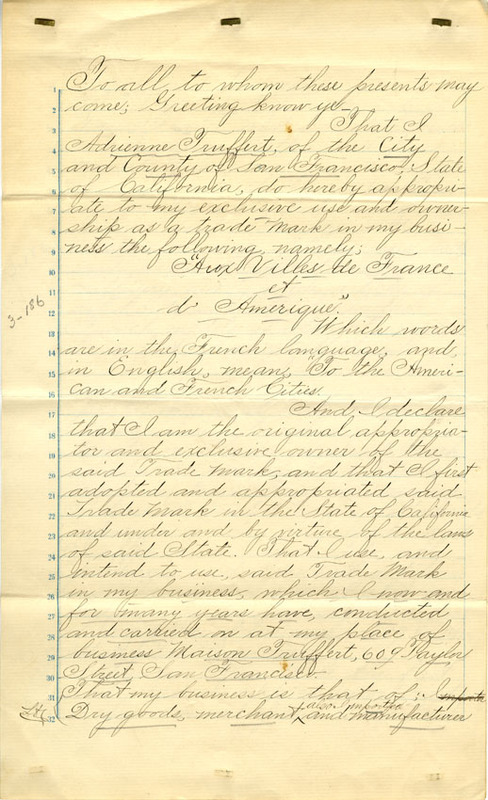 To all to whom these presents may
come; Greeting know ye-
That I
Adrienne Truffert, of the City
and County of San Francisco, State
of California, do hereby appropri-
ate to my exclusive use and owner-
ship as a trade mark in my busi-
ness the following, namely;
"Aux Villes de France
et
d' Amerique".
Which words
are in the French language, and,
in English, mean, "To the Ameri-
can and French Cities.
And I declare
that I am the original appropria-
tor and exclusive owner of the
said Trade Mark, and that I first
adopted and appropriated said
Trade Mark in the State of California
and under and by virtue of the laws
of said State. That I use, and
intend to use, said Trade Mark
in my business, which I now and
for many years have, conducted
and carried on at my place of
business Maison Truffert, 609 Taylor
Street, San Francisco.
That my business is that of:
Dry goods, merchant, also importer and manufacturer
3-186
1
2
3
4
5
6
7
8
9
10
11
12
13
14
15
16
17
18
19
20
21
22
23
24
25
26
27
28
29
30
31
32